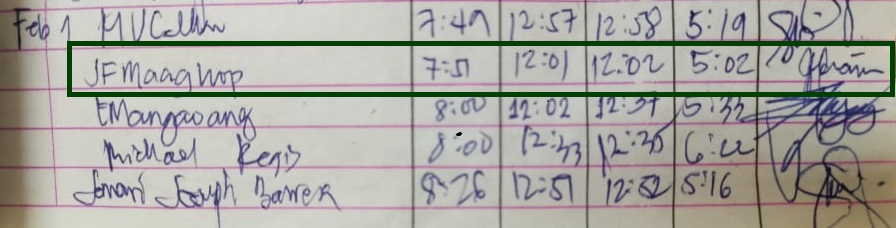 Feb 1 MVCalim 7:49 12:57 12:58 5:19
JFMaaghop 7:51 12:01 12:02 5:02
EMangaoang 8:00 12:02 12:37 5:33
Michael Regis 8:00 12:33 12:35 6:22
Jomari Joseph Barrera 8:26 12:51 12:52 5:16